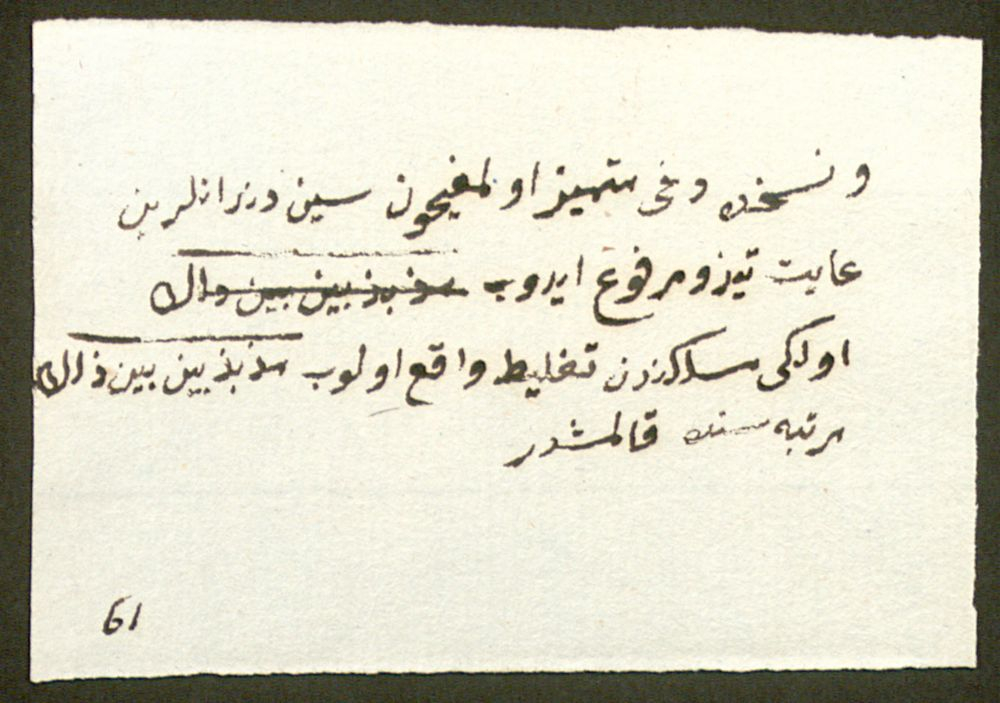 و نسخه‌ده دخی متمیز اولمغیچون سین وزرانلرین
عایت تیز و مرفوع ایدوب مذبذبین بین ذالك
اولكی مسلكزدن تغلیط واقع اولوب مذبذبین بین ذالك
مرتبه سنده قالمشدر
61